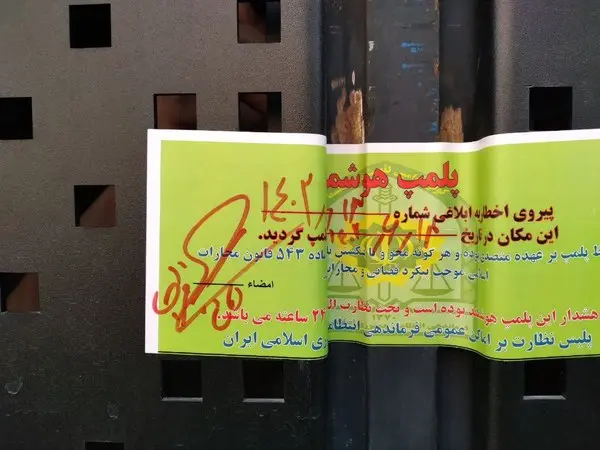 پلمپ هوشم
پیروی اخطاریه ابلاغی شماره
این مکان در تاریخ مپ گردید.
ظ پلمپ بر عهده متصدی بوده و هر گونه محو و یا شکستن ماده ۵۴۳ قانون مجازات
اسلامی موجب پیگرد قضایی و مجازات
امضاء
هشدار این پلمپ هوشمند بوده است و تحت نظارت ۲۴ ساعته می باشد.
پلیس نظارت بر اماکن عمومی فرماندهی انتظامی ری اسلامی ایران